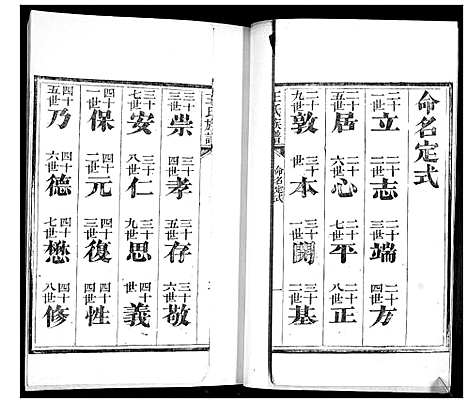 命名定式
二十一世立 二十二世志 二十三世端 二十四世方
二十五世居 二十六世心 二十七世平 二十八世正
二十九世敦 三十世本 三十一世開 三十二世基
王氏族譜 命名定式 一
王氏族譜
三十三世崇 三十四世孝 三十五世存 三十六世敬
三十七世安 三十八世仁 三十九世思 四十世義
四十一世保 四十二世元 四十三世復 四十四世性
四十五世乃 四十六世德 四十七世懋 四十八世修